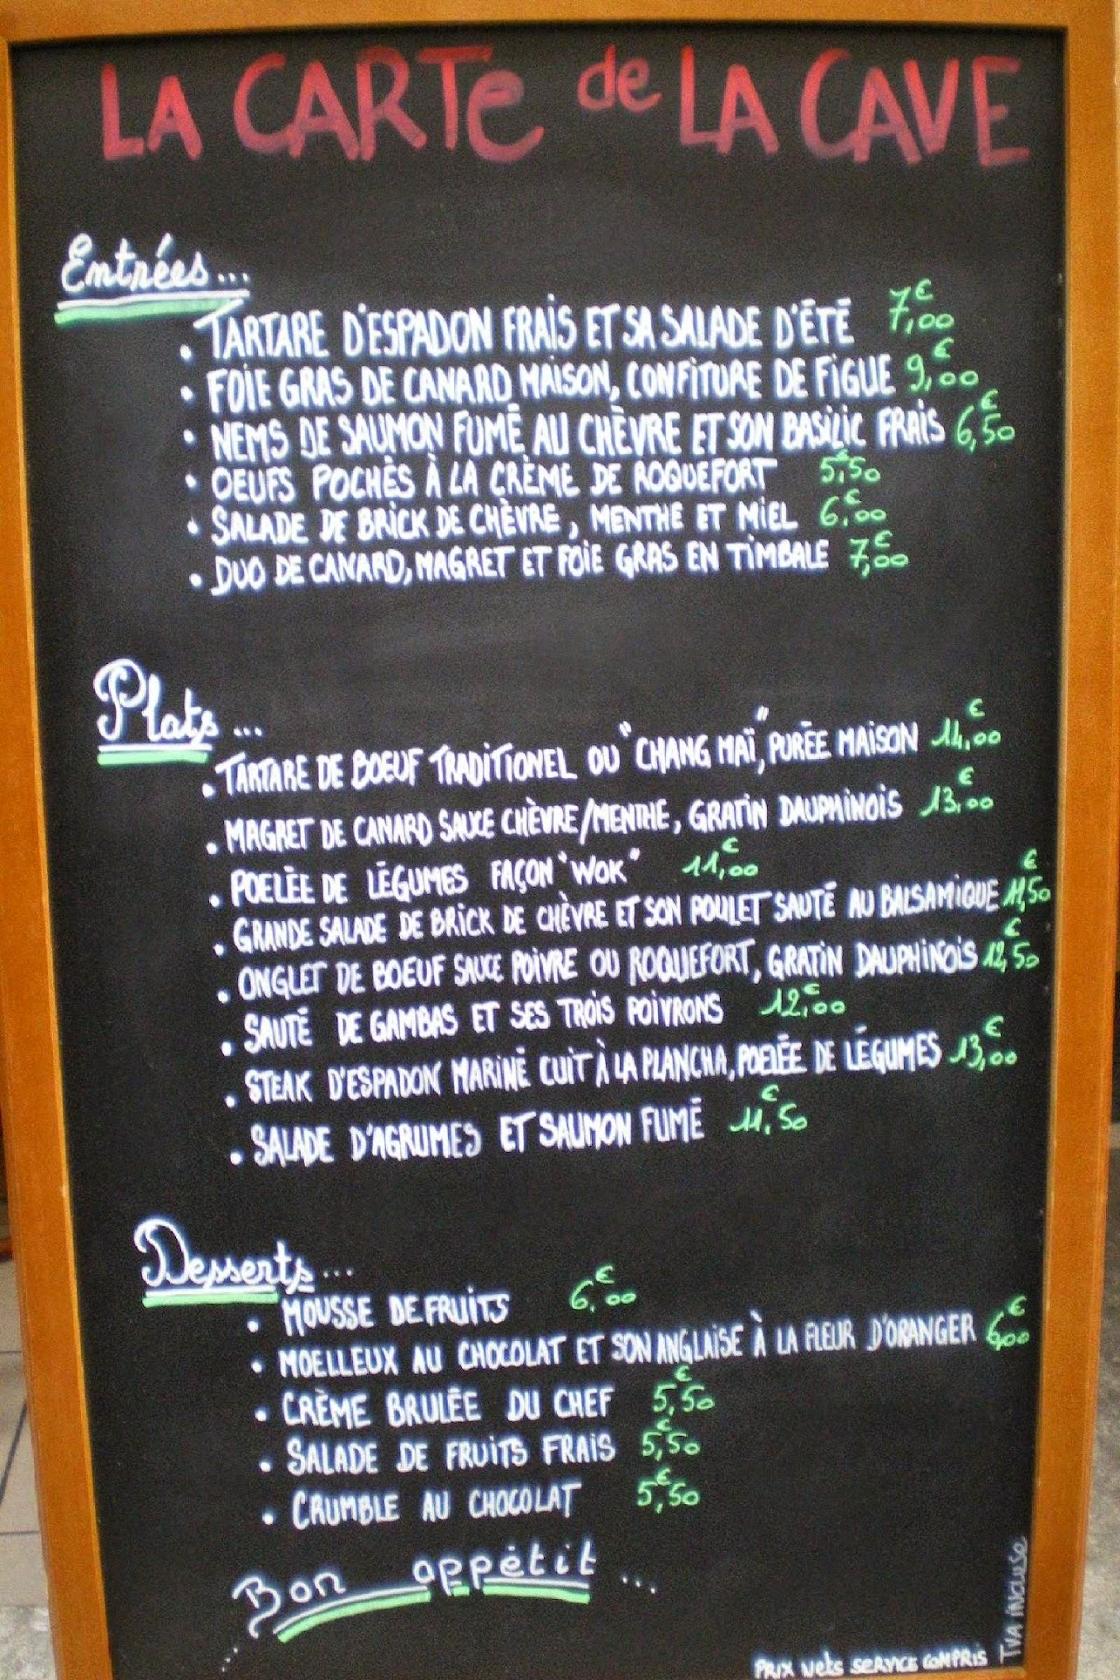 LA CARTe de LA CAVE
Entrées...
• TARTARE D'ESPADON FRAIS ET SA SALADE D'ÉTÉ 7,00€
• FOIE GRAS DE CANARD MAISON, CONFITURE DE FIGUE 9,00€
• NEMS DE SAUMON FUMÉ AU CHÈVRE ET SON BASILIC FRAIS 6,50€
• OEUFS POCHÈS À LA CRÈME DE ROQUEFORT 5,50€
• SALADE DE BRICK DE CHÈVRE, MENTHE ET MIEL 6,00€
• DUO DE CANARD, MAGRET ET FOIE GRAS EN TIMBALE 7,00€
Plats...
• TARTARE DE BOEUF TRADITIONEL OU "CHANG MAÏ", PURÉE MAISON 14,00€
• MAGRET DE CANARD SAUCE CHÈVRE/MENTHE, GRATIN DAUPHINOIS 13,00€
• POELÉE DE LÉGUMES FAÇON "WOK" 11,00€
• GRANDE SALADE DE BRICK DE CHÈVRE ET SON POULET SAUTÉ AU BALSAMIQUE 11,50€
• ONGLET DE BOEUF SAUCE POIVRE OU ROQUEFORT, GRATIN DAUPHINOIS 12,50€
• SAUTÉ DE GAMBAS ET SES TROIS POIVRONS 12,00€
• STEAK D'ESPADON MARINÉ CUIT À LA PLANCHA, POELÉE DE LÉGUMES 13,00€
• SALADE D'AGRUMES ET SAUMON FUMÉ 11,50€
Desserts...
• MOUSSE DE FRUITS 6,00€
• MOELLEUX AU CHOCOLAT ET SON ANGLAISE À LA FLEUR D'ORANGER 6,00€
• CRÈME BRULÉE DU CHEF 5,50€
• SALADE DE FRUITS FRAIS 5,50€
• CRUMBLE AU CHOCOLAT 5,50€
... Bon appétit...
PRIX Nets SERVICE COMPRIS
TVA INCLUSE